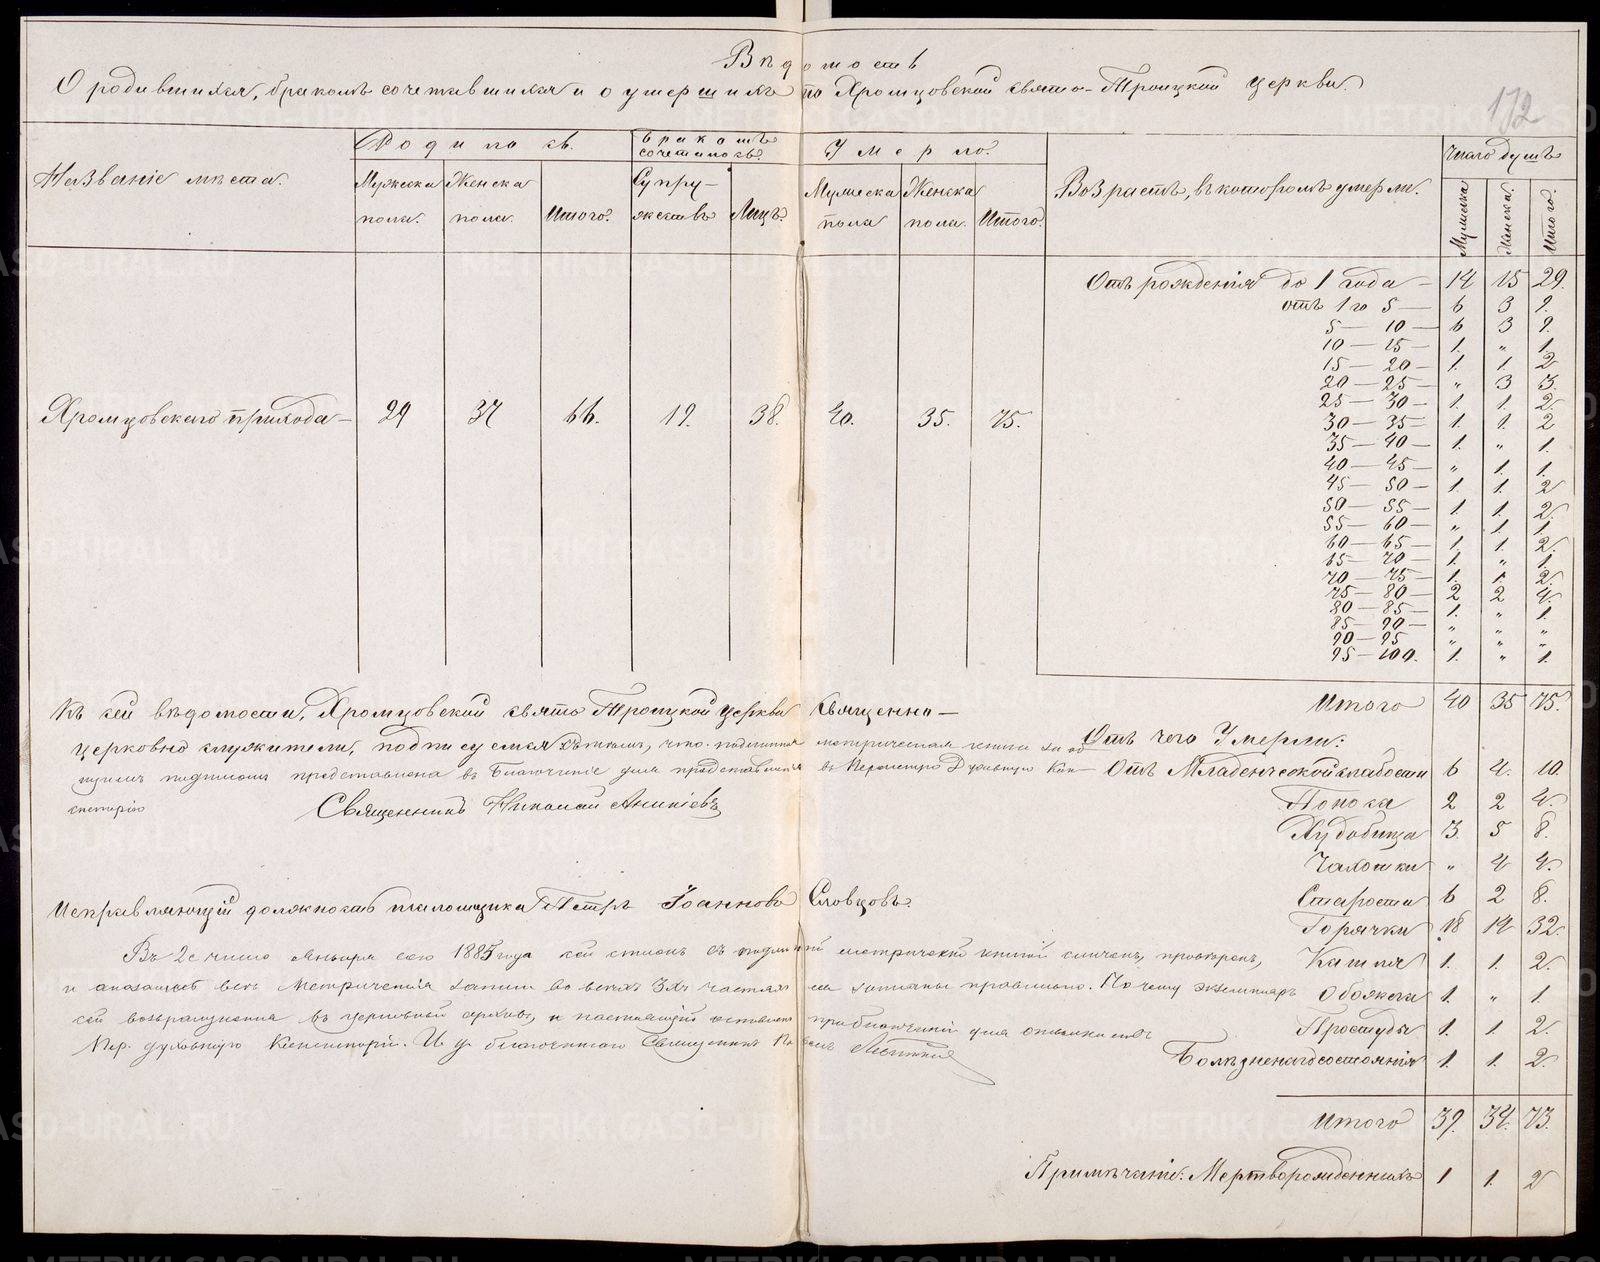 Вѣдомость
О родившихся, бракомъ сочетавшихся и о умершихъ по Хромцовской свято-Троицкой церкви.
172
Названіе мѣста.
Родилось.
Мужеска пола.
Женска пола.
Итого.
Бракомъ сочеталось.
Супружествъ
Лицъ.
Умерло.
Мужеска пола
Женска пола.
Итого.
Возрастъ, въ которомъ умерли.
Число душъ
Мужска
Женска.
Итого.
Хромцовскаго прихода — 29 37 66. 19. 38. 40. 35. 75.
Отъ рожденія до 1 года — 14 15 29.
отъ 1 го 5 — 6 3 9.
5 — 10 — 6 3 9.
10 — 15 — 1. " 1.
15 — 20 — 1. 1. 2
20 — 25 — " 3 3.
25 — 30 — 1. 1. 2.
30 — 35 — 1. 1. 2
35 — 40 — 1. " 1.
40 — 45 — " 1. 1.
45 — 50 — 1. 1. 2
50 — 55 — 1. 1. 2.
55 — 60 — " 1 1.
60 — 65 — 1. 1. 2.
65 — 70 — 1. " 1.
70 — 75 — 1. 1. 2.
75 — 80 — 2 2 4.
80 — 85 — 1. " 1.
85 — 90 — " " "
90 — 95 " " "
95 — 100. 1. " 1.
Итого 40 35 75.
Къ сей вѣдомости, Хромцовской свято Троицкой церкви Священно-
церковно служители, подписуемся въ томъ, что подлинная метрическая книга за
подписомъ представлена въ Благочиніе для представленія въ Пермскую Духовную Кон-
систорію
Священникъ Николай Аникіевъ
Исправляющій должность псаломщика Петръ Іоанновъ Словцовъ.
Въ 2е число Января сего 1885 года сей списокъ съ подлинной метрической книгой сличенъ, провѣренъ,
и оказалось всѣ Метрическія записи во всѣхъ 3хъ частяхъ записаны правильно. По чему экземпляръ
сей возвращенъ въ церковный архивъ, а настоящій оставленъ при благочиніи для отсылки въ
Пер. духовную Консисторію. И. д. благочиннаго Священникъ
Отъ чего Умерли:
Отъ Младенческой слабости 6 4. 10.
Поноса 2 2 4.
Худобища 3. 5 8.
Чахотки " 4 4.
Старости 6 2 8.
Горячки 18 14 32.
Кашля 1. 1. 2.
Обжога 1. " 1.
Простуды 1. 1. 2.
Болѣзненаго состоянія 1. 1. 2.
Итого 39. 34. 73.
Примѣчаніе: Мертворожденныхъ 1 1. 2
METRIKI.GASO-URAL.RU